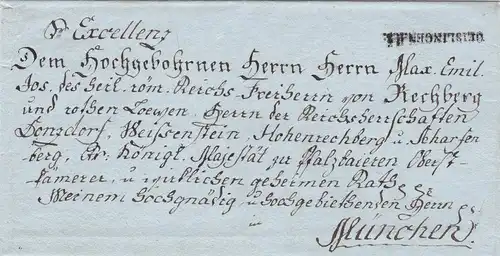 Sr Excellenz
GEISLINGEN
Dem Hochgebohrnen Herrn Herrn Max. Emil.
Jos. des heil. röm. Reichs Freiherrn von Rechberg
und rothen Loewen, Herrn der Reichsherrschaften
Donsdorf, Weissenstein, Hohenrechberg u Scharfen
berg, Königl. Majestät zu Pfalzbaiern Oberst-
kämerer, u wirklichen geheimen Rath
Meinem hochgnädig u hochgebiethenden Herrn
in
München.